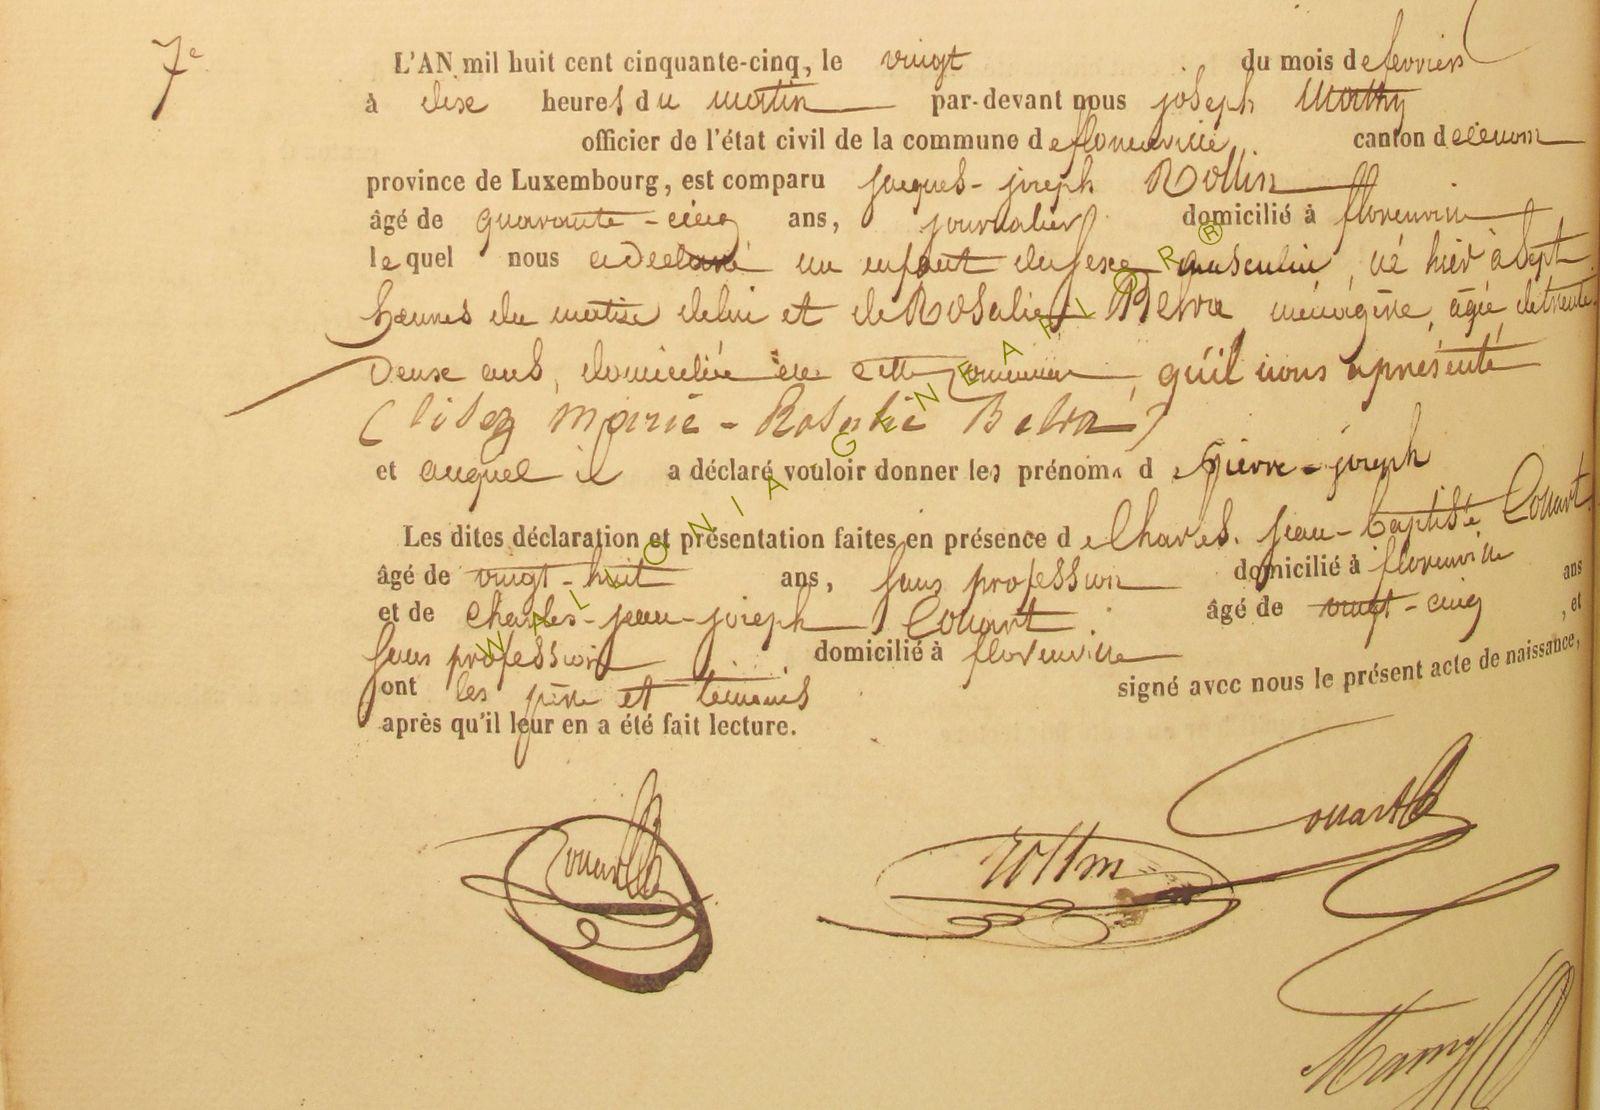 7e
L'AN mil huit cent cinquante-cinq, le vingt du mois de fevrier
à dise heures du matin par-devant nous joseph Mathy
officier de l'état civil de la commune de florenville canton de
province de Luxembourg, est comparu jacques-joseph Rollin
âgé de quarante-cinq ans, journalier domicilié à florenville
le quel nous a déclaré un enfant du sexe masculin, né hier à sept
heures du matin de lui et de Rosalie Belva ménagère, agée de trente
Deuse ans, domiciliée en cette commune, qu'il nous a présenté
(lisez Marie-Rosalie Belva)
et auquel il a déclaré vouloir donner les prénoms de pierre-joseph
Les dites déclaration et présentation faites en présence de Charles-jean-baptiste Couart
âgé de vingt-huit ans, sans profession domicilié à florenville
et de Charles-jean-joseph Couart âgé de vingt-cinq ans
sans profession domicilié à florenville , et
ont les père et témoins signé avec nous le présent acte de naissance,
après qu'il leur en a été fait lecture.
Couart
Rollin
Couart
WALLONIA GENEARIOR ®